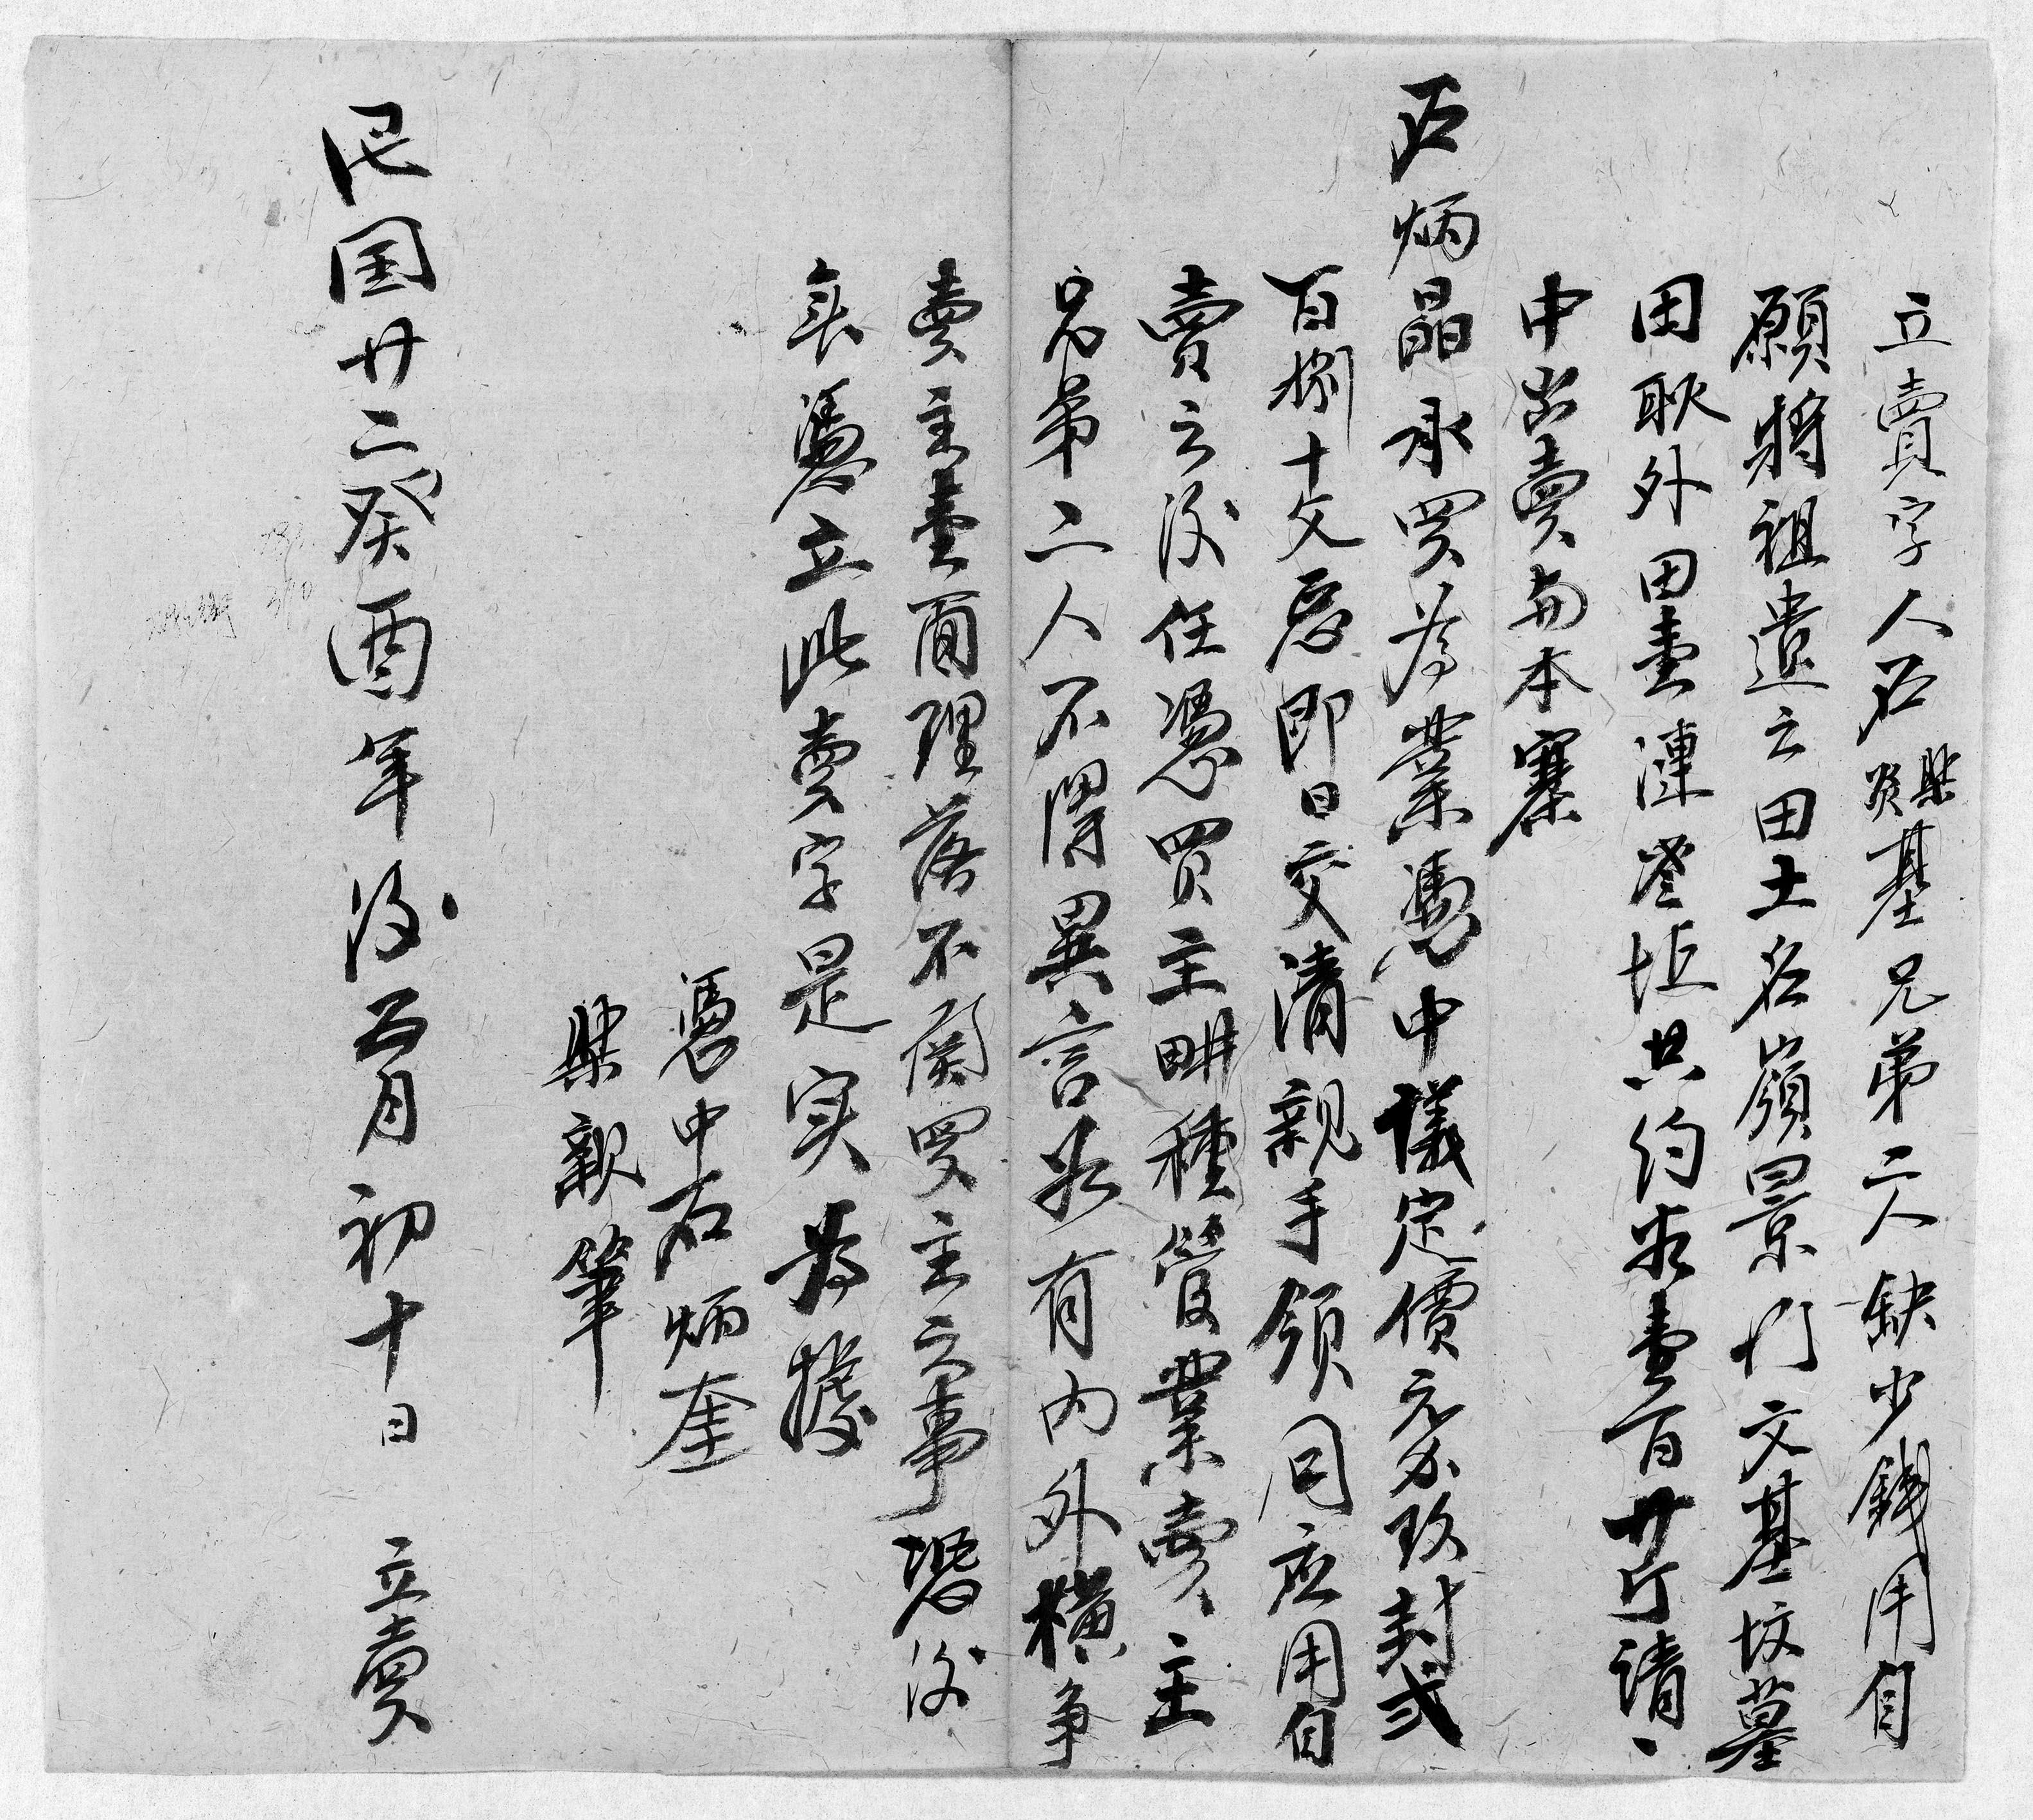 立賣字人石基兄弟二人缺少錢用自
願将祖遺之田土名嶺景门文基坟墓
田耿外田壹連登坵共約谷壹百廿斤請
中出賣与本寨
石炳晶承買為業憑中議定價元錢玖封弍
百捌十文悉即日交清親手領囘应用自
賣之後任憑買主畊種管業賣主
兄弟二人不得異言若有内外横争
賣主壹面理落不関買主之事恐後
無憑立此賣字是实為據
憑中石炳奎
親筆
民国廿二癸酉年後五月初十日 立賣